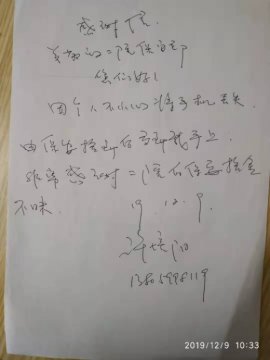 感谢信
尊敬的二院保卫部
您们好!
因个人不小心将手机丢失.
由保安捡到后交到我手上.
非常感谢二院保安拾金
不昧.
19.12.9.
13805998119
2019/12/9 10:33